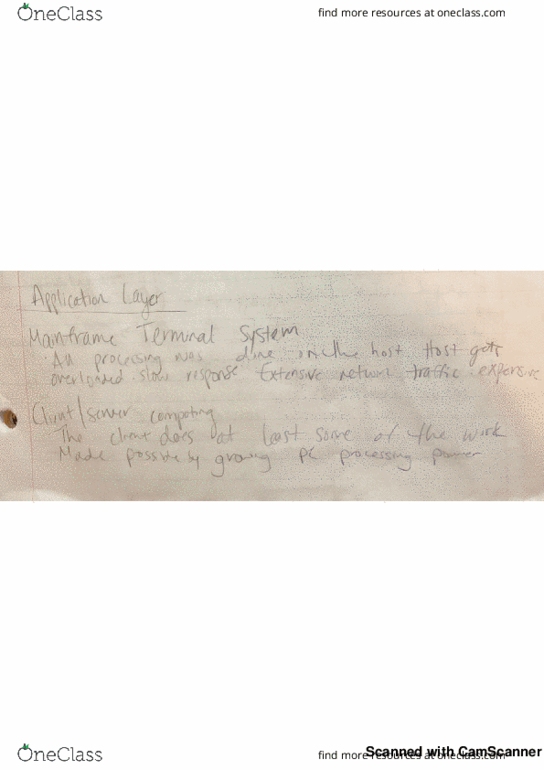 OneClass
find more resources at oneclass.com
Application Layer
Mainframe Terminal System
All processing was done in the host Host gets
overloaded slow response Extensive network traffic expensive
Client/server computing
The client does at least some of the work
Made possible by growing PC processing power
OneClass
find more resources at oneclass.com
Scanned with CamScanner